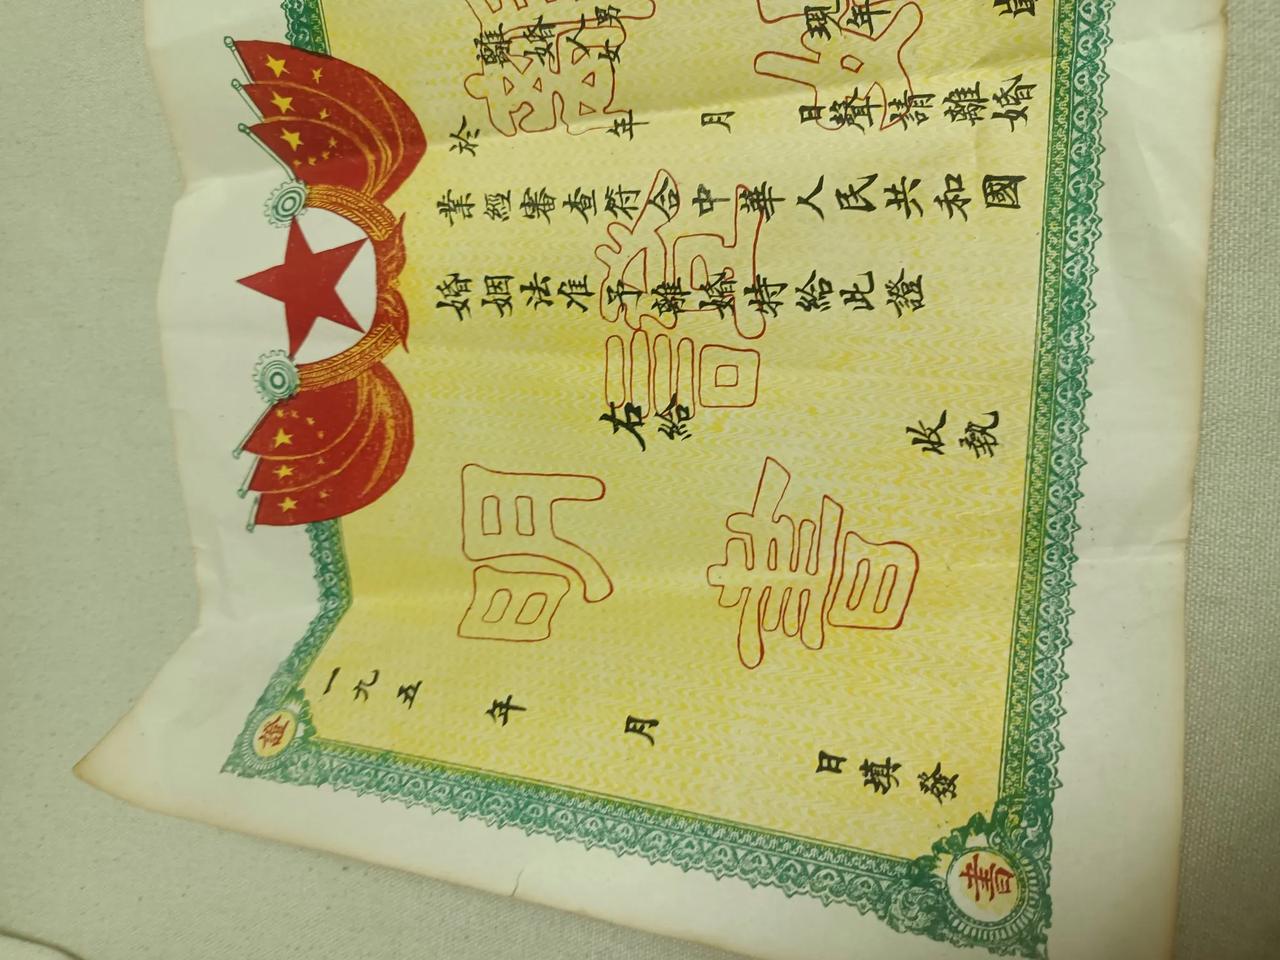 離婚人男女 現年 歲
於 年 月 日聲請離婚
業經審查符合中華人民共和國
婚姻法准予離婚特給此證
右給 收執
一九五 年 月 日填發
證
明書
證
書